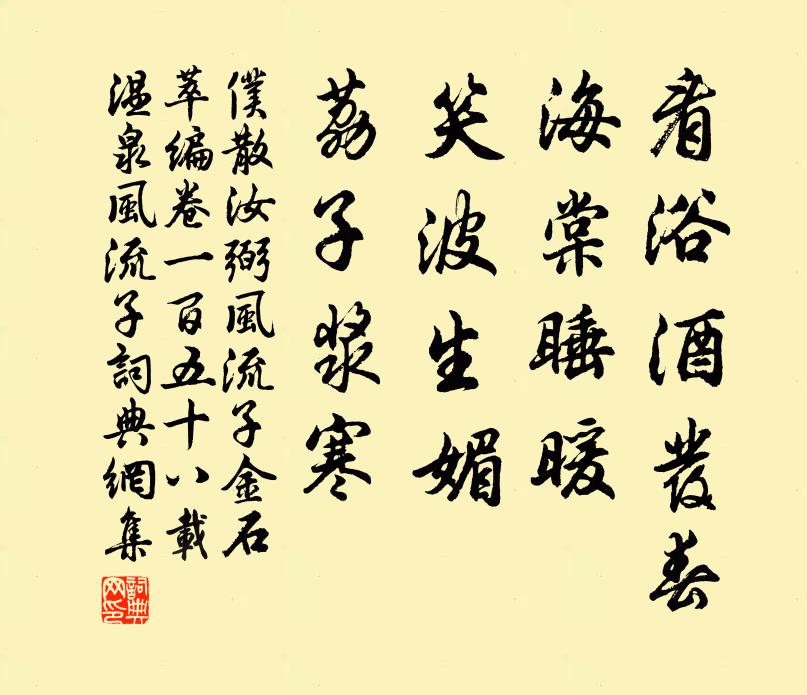 看浴酒發春
海棠睡暖
笑波生媚
荔子漿寒
僕散汝弼風流子金石
萃編卷一百五十八載
溫泉風流子詞典網集
詞典網印